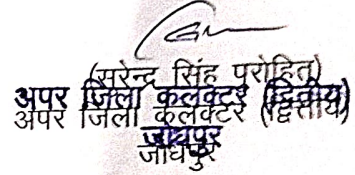 (सुरेन्द्र सिंह पुरोहित)
अपर जिला कलक्टर (द्वितीय)
अपर जिला कलेक्टर (द्वितीय)
जोधपुर
जोधपुर